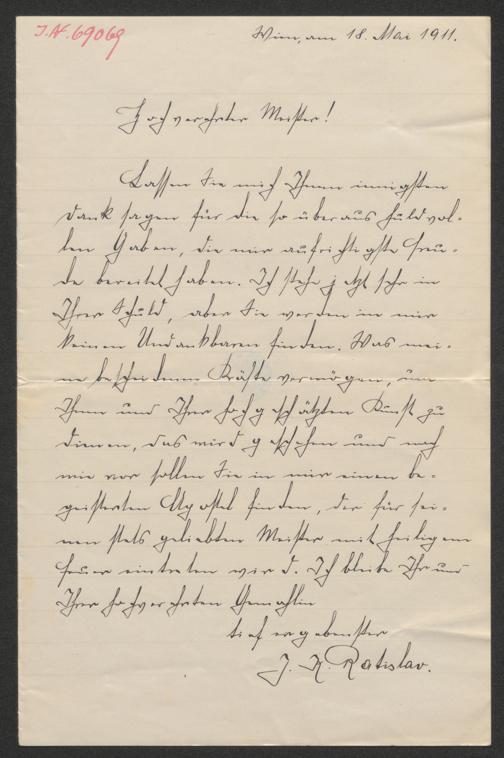 J.N. 69069
Wien, am 18. Mai 1911.
Hochverehrter Meister!
Lassen Sie mich Ihnen innigsten
Dank sagen für die so überaus huldvol-
len Gaben, die mir aufrichtigste Freu-
de bereitet haben. Ich stehe jetzt sehr in
Ihrer Schuld, aber Sie werden in mir
keinen Undankbaren finden. Was mei-
ne bescheidenen Kräfte vermögen, um
Ihnen und Ihrer hochgeschätzten Kunst zu
dienen, das wird geschehen und nach
wie vor sollen Sie in mir einen be-
geisterten Apostel finden, der für sei-
nen stets geliebten Meister mit heiligem
Feuer eintreten wird. Ich bleibe Ihr und
Ihrer hochverehrten Gemahlin
tief ergebenster
J. K. Ratislav.